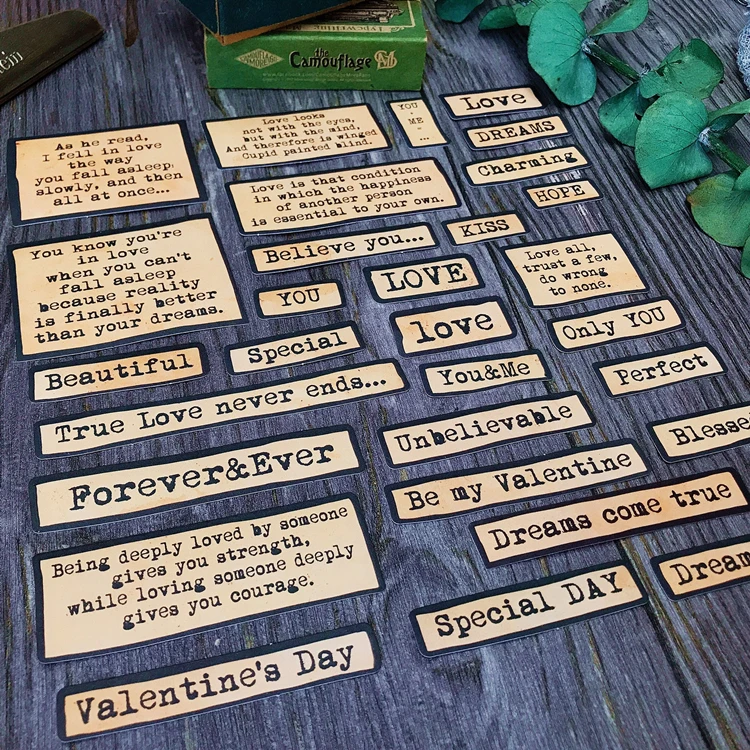 Typewriter
the
Camouflage
CAMOUFLAGE
As he read,
I fell in love
the way
you fall asleep:
slowly, and then
all at once...
Love looks
not with the eyes,
but with the mind,
And therefore is winged
Cupid painted blind.
YOU
+
ME
=
...
Love
DREAMS
Charming
HOPE
Love is that condition
in which the happiness
of another person
is essential to your own.
KISS
Believe you...
You know you're
in love
when you can't
fall asleep
because reality
is finally better
than your dreams.
YOU
LOVE
Love all,
trust a few,
do wrong
to none.
love
Only YOU
Beautiful
Special
You&Me
Perfect
True Love never ends...
Unbelievable
Blesse
Forever&Ever
Be my Valentine
Dreams come true
Being deeply loved by someone
gives you strength,
while loving someone deeply
gives you courage.
Special DAY
Dream
Valentine's Day